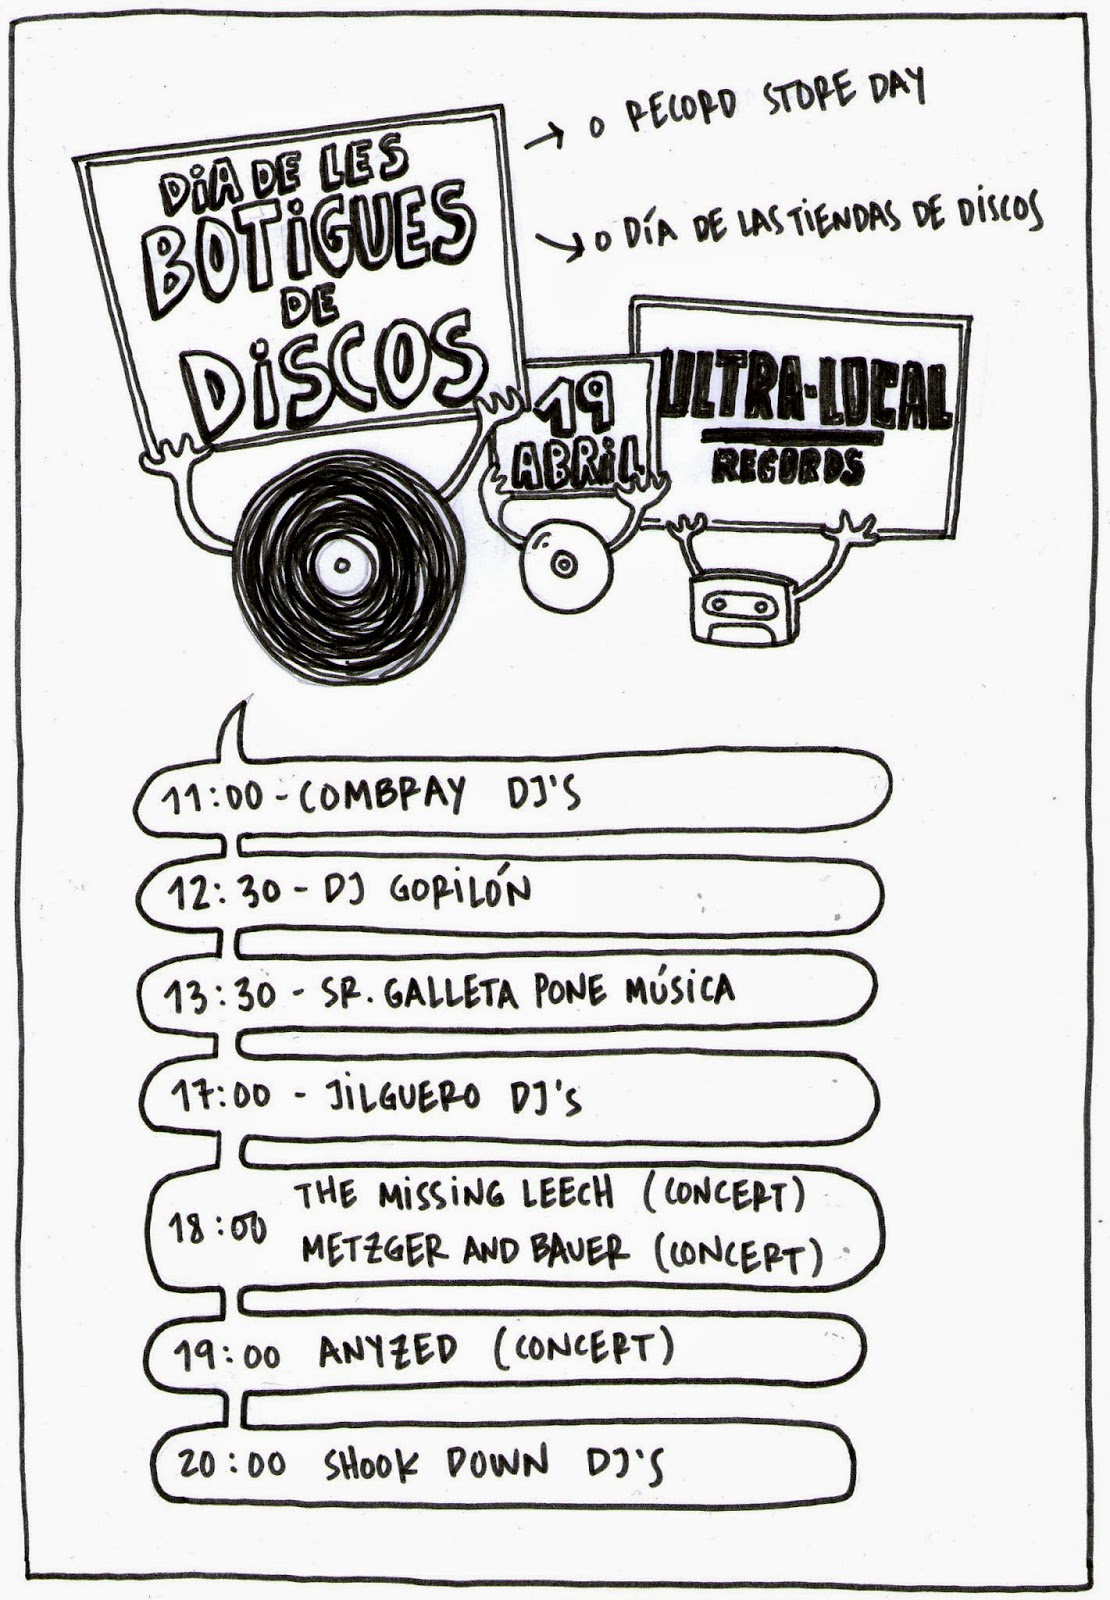 DIA DE LES
BOTIGUES
DE
DISCOS
→ O RECORD STORE DAY
→ O DÍA DE LAS TIENDAS DE DISCOS
19
ABRIL
ULTRA-LOCAL
RECORDS
11:00 - COMBRAY DJ'S
12:30 - DJ GORILÓN
13:30 - SR. GALLETA PONE MÚSICA
17:00 - JILGUERO DJ'S
18:00 THE MISSING LEECH (CONCERT)
METZGER AND BAUER (CONCERT)
19:00 ANYZED (CONCERT)
20:00 SHOOK DOWN DJ'S